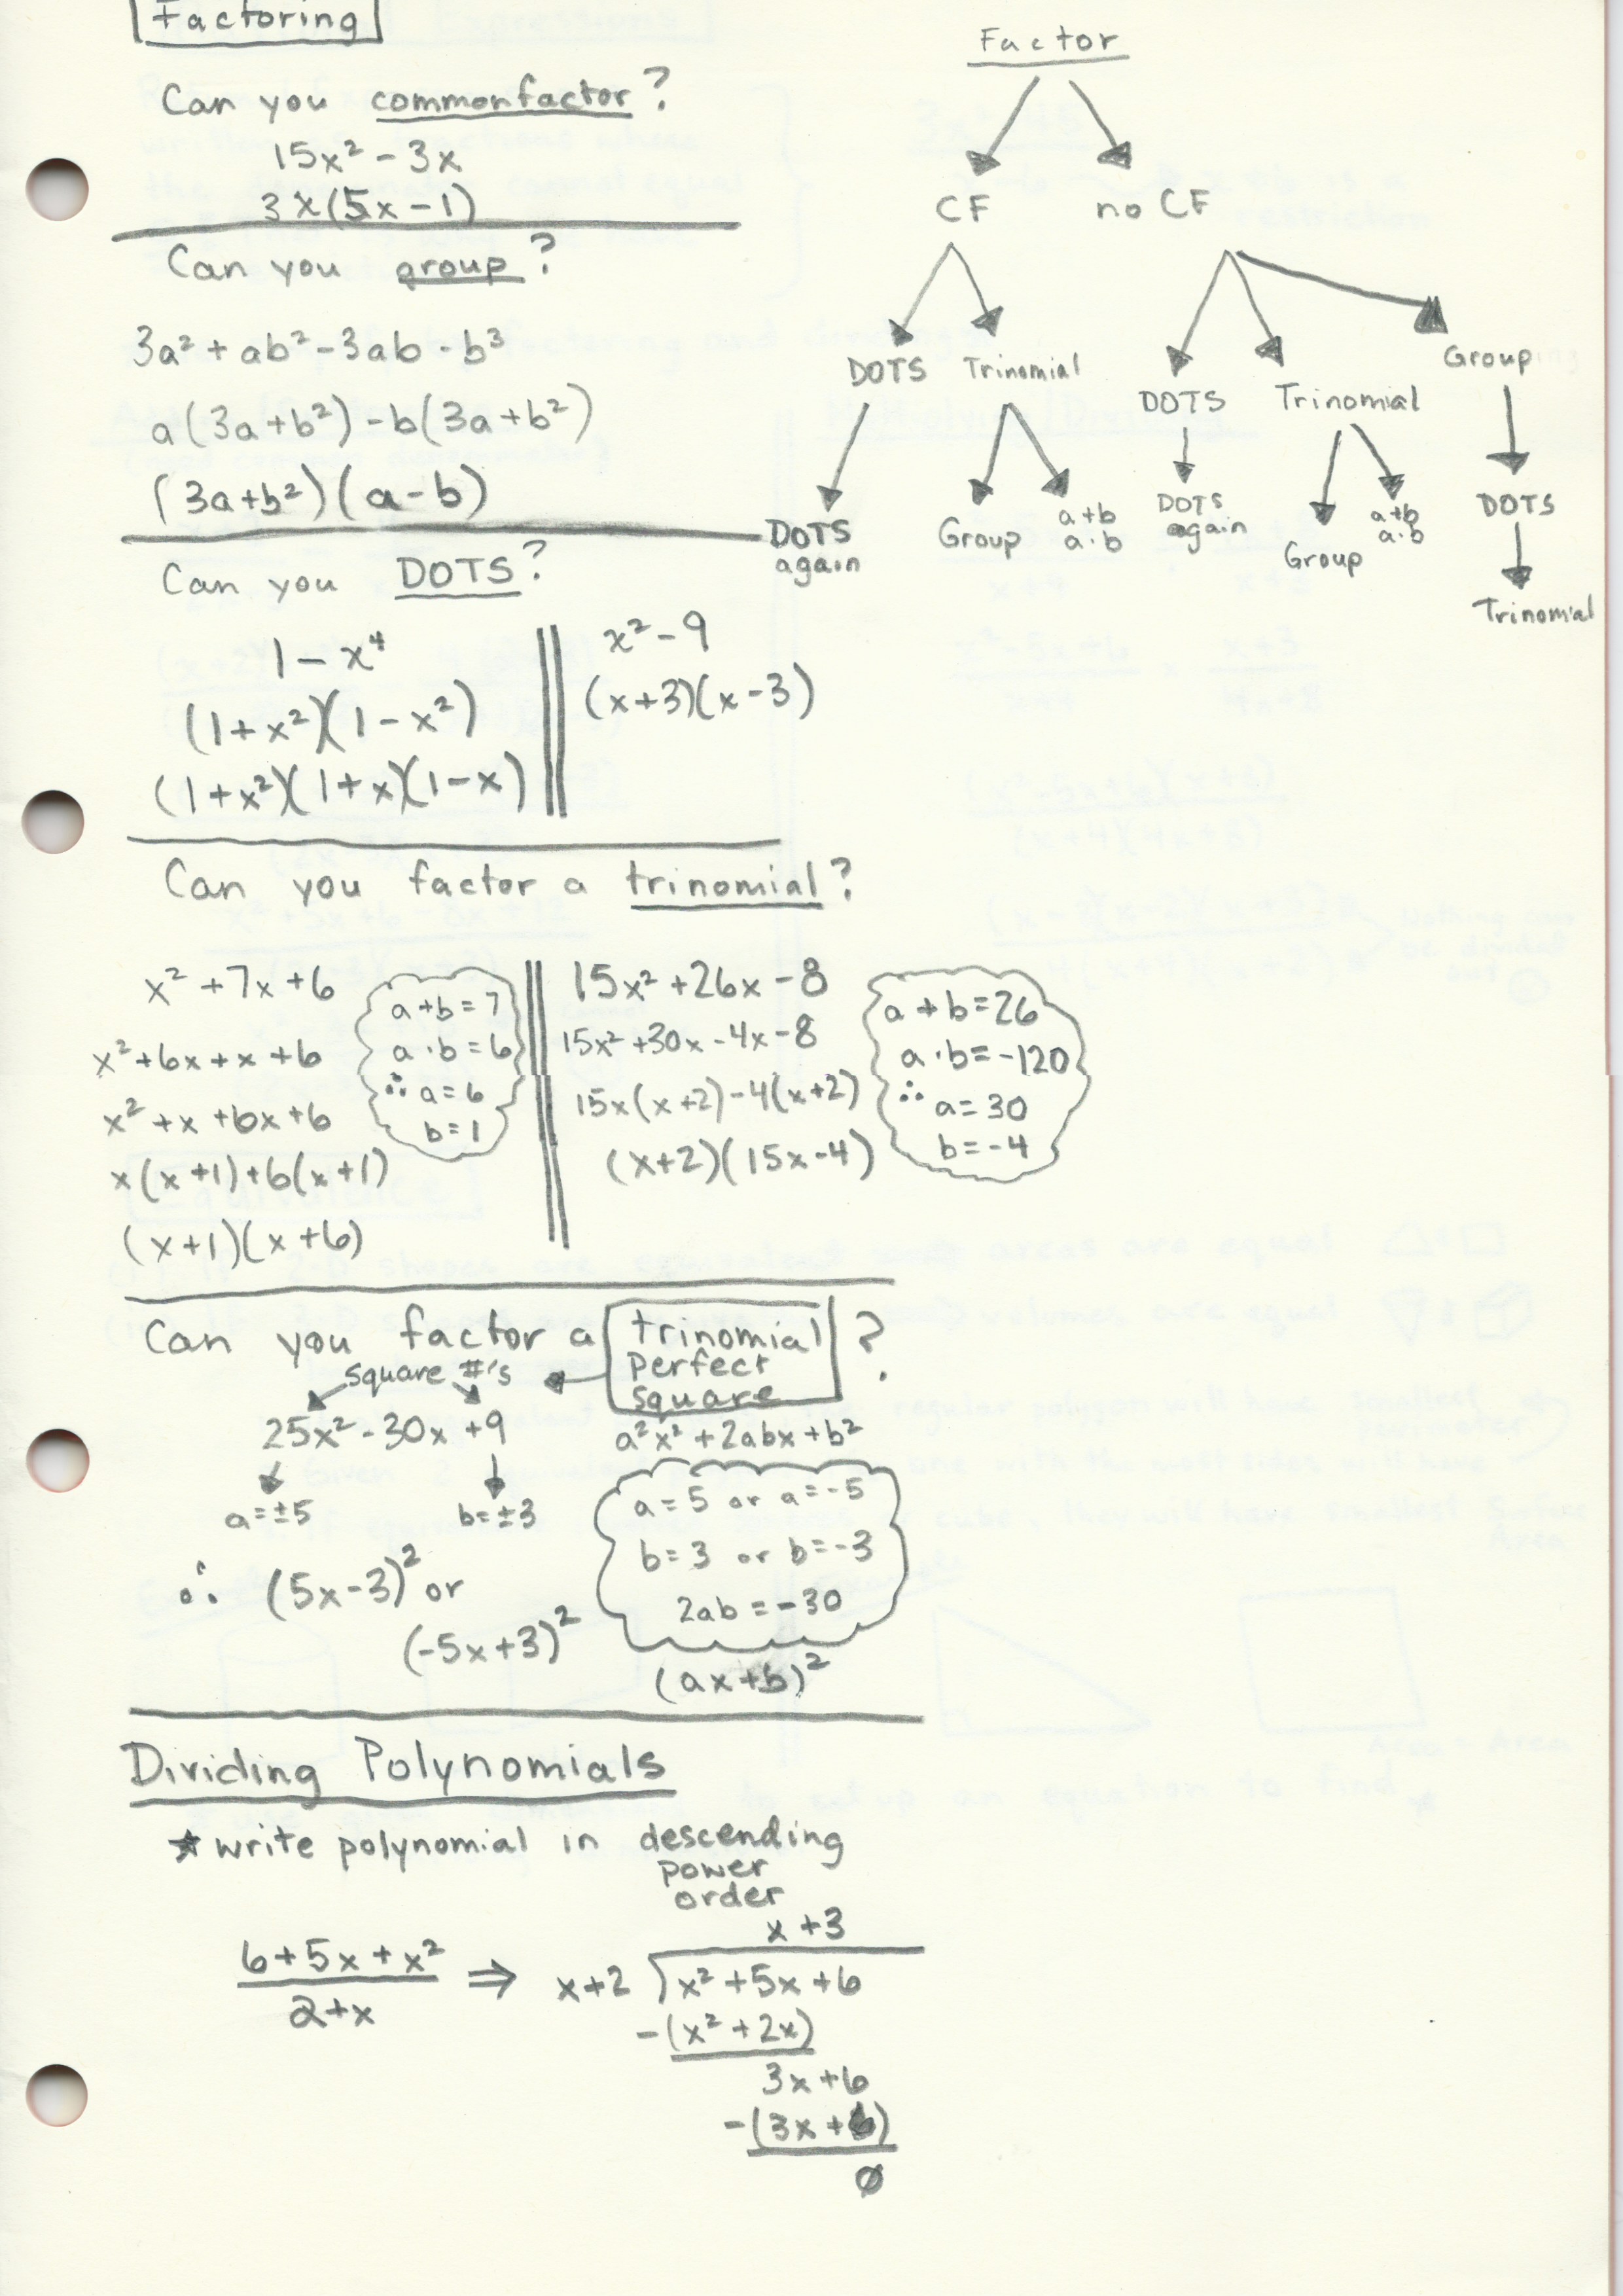 Factoring
Can you common factor?
15x² - 3x
3x(5x-1)
Can you group?
3a² + ab² - 3ab - b³
a(3a+b²) - b(3a+b²)
(3a+b²)(a-b)
Can you DOTS?
1 - x⁴
(1+x²)(1-x²)
(1+x²)(1+x)(1-x)
x² - 9
(x+3)(x-3)
Can you factor a trinomial?
x² + 7x + 6
x² + 6x + x + 6
x² + x + 6x + 6
x(x+1) + 6(x+1)
(x+1)(x+6)
a + b = 7
a · b = 6
∴ a = 6
b = 1
15x² + 26x - 8
15x² + 30x - 4x - 8
15x(x+2) - 4(x+2)
(x+2)(15x-4)
a + b = 26
a · b = -120
∴ a = 30
b = -4
Can you factor a trinomial perfect square?
square #'s
25x² - 30x + 9
a = ±5 b = ±3
∴ (5x-3)² or
(-5x+3)²
a²x² + 2abx + b²
a = 5 or a = -5
b = 3 or b = -3
2ab = -30
(ax+b)²
Dividing Polynomials
★ write polynomial in descending
power
order
6 + 5x + x²
2 + x
⇒
x + 3
x+2 x² + 5x + 6
-(x² + 2x)
3x + 6
-(3x + 6)
0
Factor
CF no CF
DOTS Trinomial DOTS Trinomial Group
DOTS again
Group
a+b
a·b
DOTS again
Group
a+b
a·b
DOTS
Trinomial